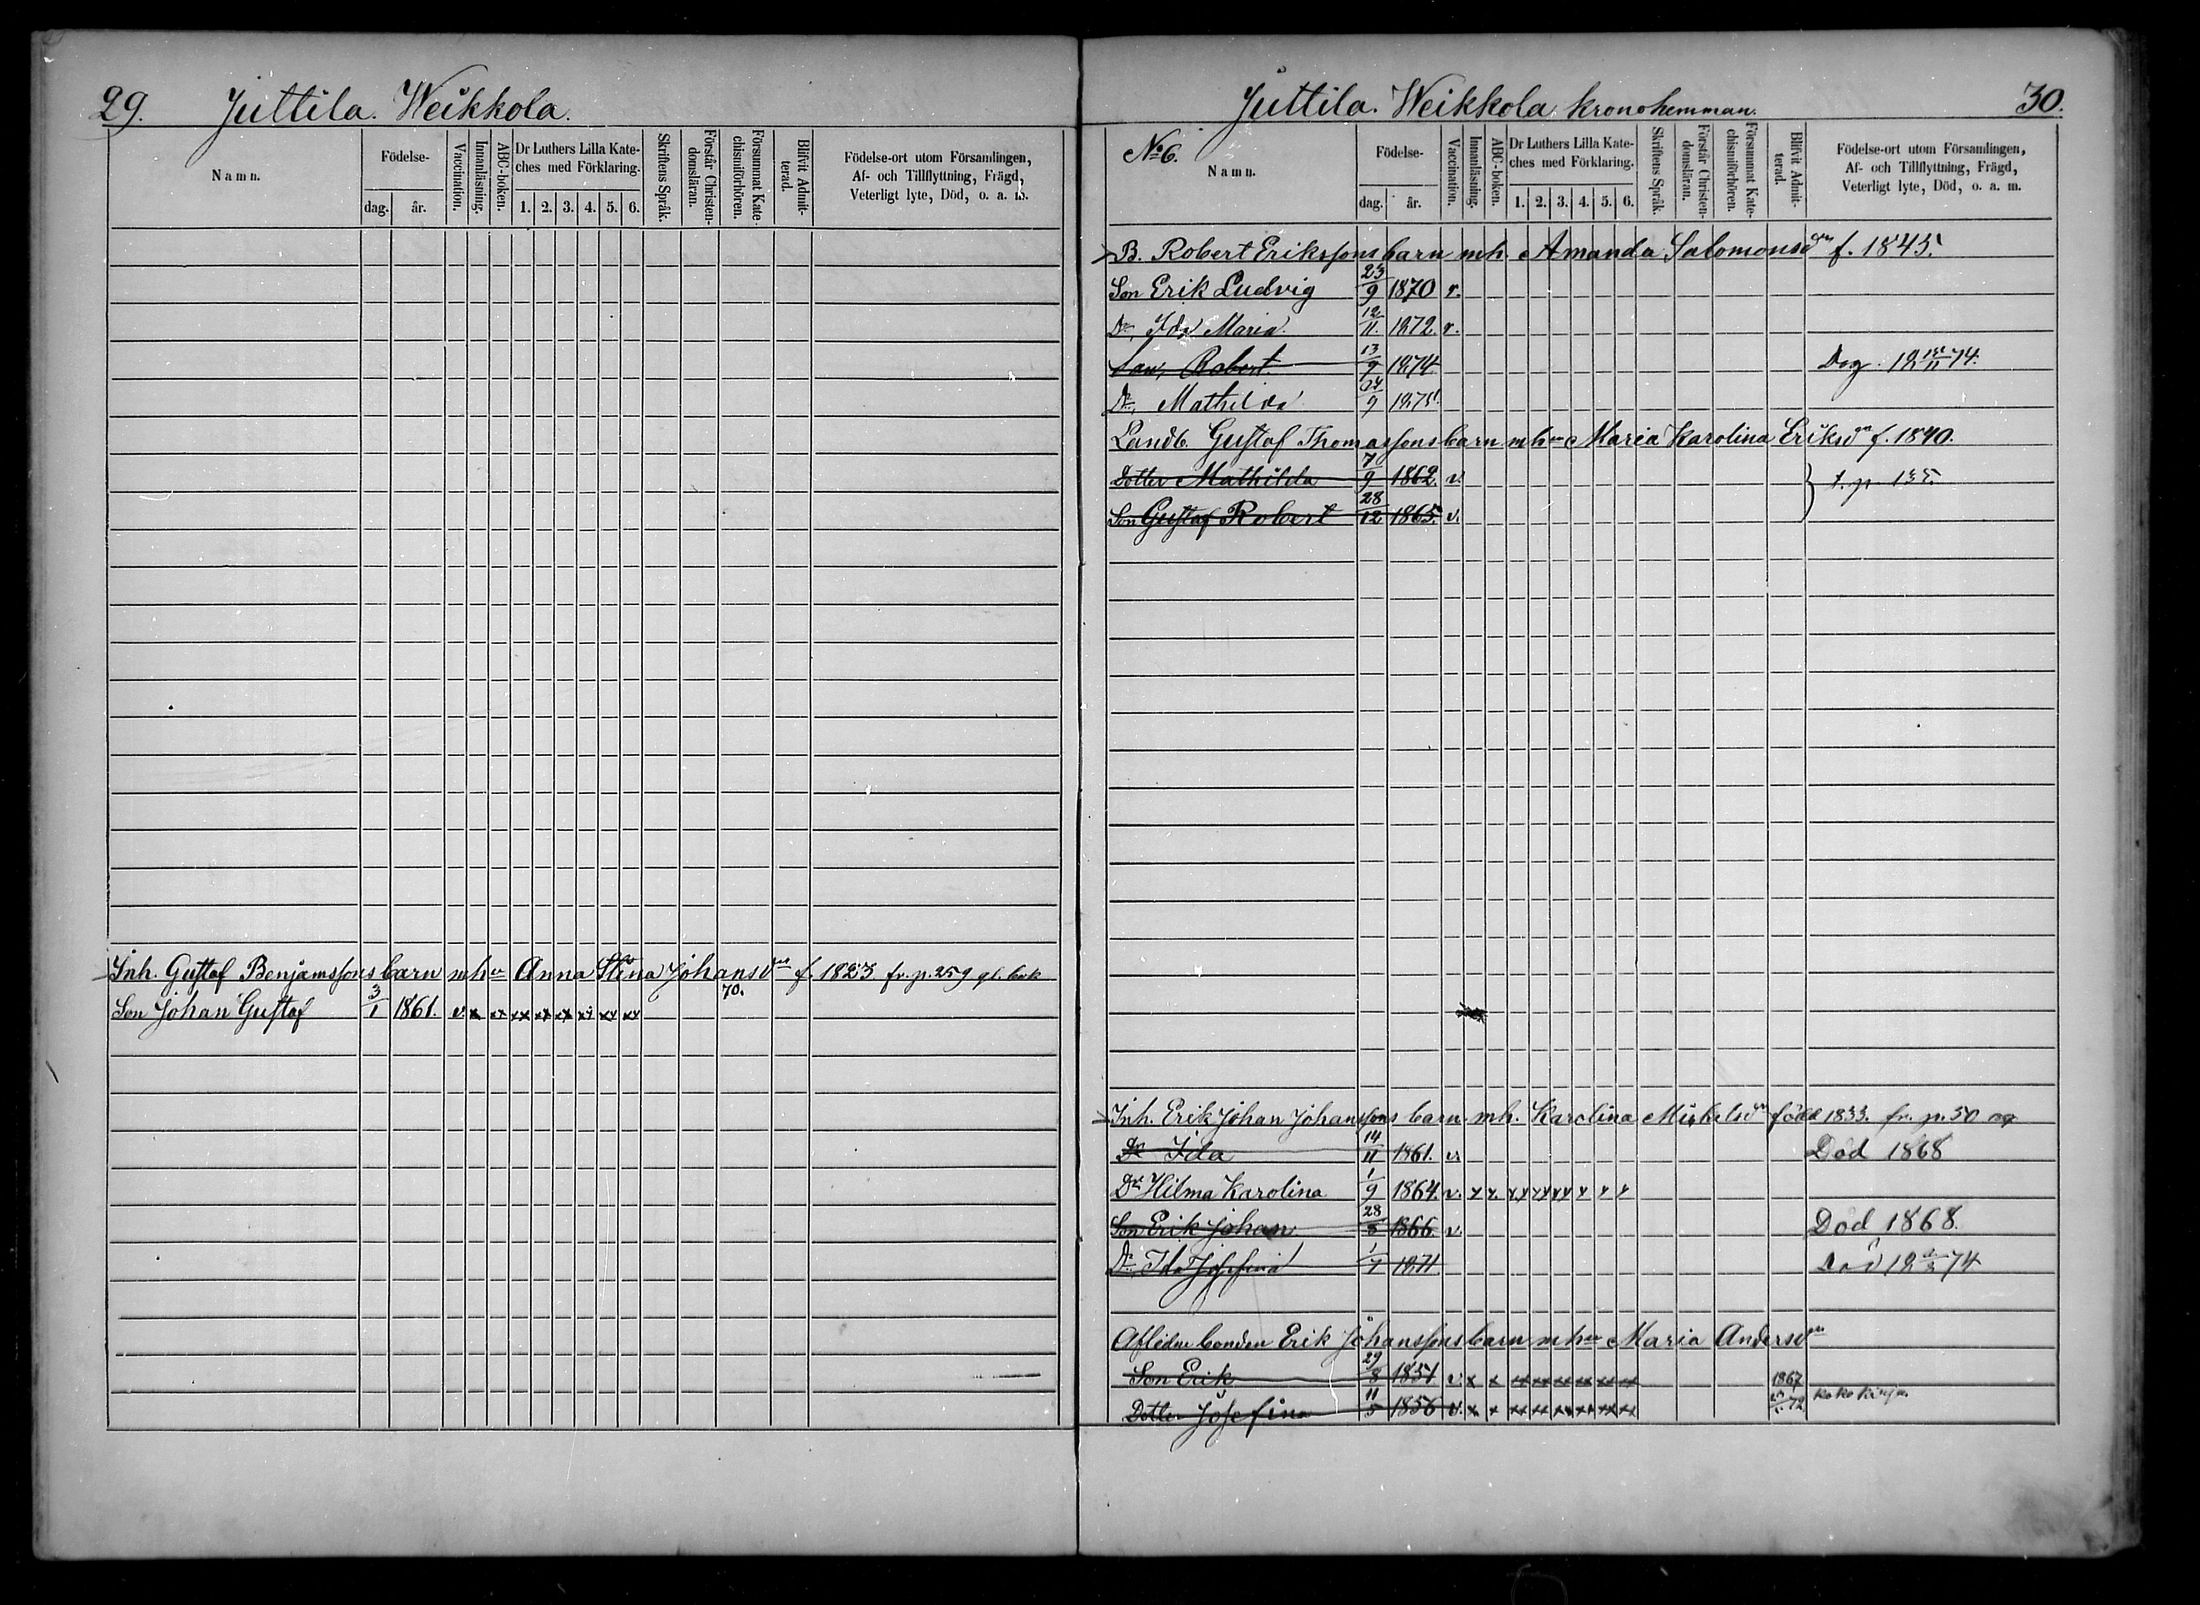 29. Juttila. Weikkola.
Namn.
Födelse-
dag. år.
Vaccination.
Innanläsning.
ABC-boken.
Dr Luthers Lilla Kate-
ches med Förklaring.
1. 2. 3. 4. 5. 6.
Skriftens Språk.
Förstår Christen-
domsläran.
Försummat Kate-
chismiförhören.
Blifvit Admit-
terad.
Födelse-ort utom Församlingen,
Af- och Tillflyttning, Frägd,
Veterligt lyte, Död, o. a. m.
Inh. Gustaf Benjamssons barn mhu Anna Stina Johansdr f. 1823 fr. p. 259 gl. bok
70.
Son Johan Gustaf 3/1 1861. v. x xx xx xx xx xx xx xx
Juttila. Weikkola kronohemman. 30.
No 6.
Namn.
Födelse-
dag. år.
Vaccination.
Innanläsning.
ABC-boken.
Dr Luthers Lilla Kate-
ches med Förklaring.
1. 2. 3. 4. 5. 6.
Skriftens Språk.
Förstår Christen-
domsläran.
Försummat Kate-
chismiförhören.
Blifvit Admit-
terad.
Födelse-ort utom Församlingen,
Af- och Tillflyttning, Frägd,
Veterligt lyte, Död, o. a. m.
B. Robert Erikssons barn mh. Amanda Salomonsdn f. 1845.
Son Erik Ludvig 23/9 1870 v.
Dr, Ida Maria 12/11. 1872. v.
Son, Robert 13/9 1874
Dr, Mathilda 24/9 1875.
Landb. Gustaf Thomassons barn mhu Maria Karolina Eriksdr f. 1840.
Dotter Mathilda 7/9 1862. v.
Son Gustaf Robert 28/12 1865. v.
Inh. Erik Johan Johanssons barn mh. Karolina Mickelsdr född 1833. fr. p. 50
Dr Ida 14/11 1861. v. Död 1868
Dr Hilma Karolina 1/9 1864. v. x x. xx xx xx x x x
Son Erik Johan 28/8 1866. v. Död 1868.
Dr Ida Josefina 1/7 1871
Aflidne bonden Erik Johanssons barn mhu Maria Andersdr
Son Erik 29/8 1851 v. x x xx xx xx xx xx xx 1867
Dotter Josefina 11/5 1856 v. x x xx xx xx xx xx xx 72